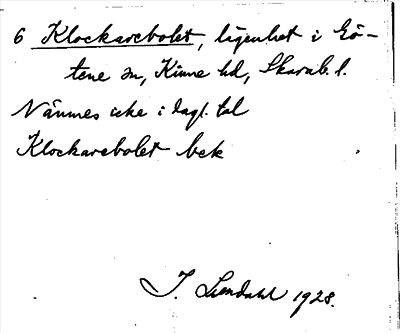 6 Klockarebolet, lägenhet i Gö-
tene sn, Kinne hd, Skarab. l.
Nämnes icke i dagl. tal
Klockarebolet bek
I. Lundahl 1928.